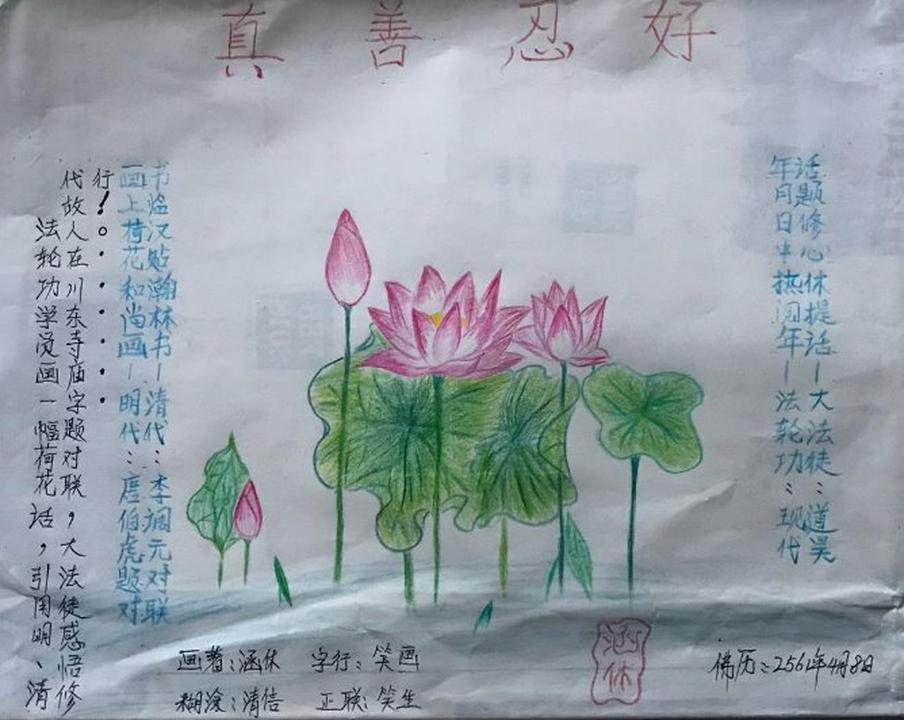 真善忍好
法轮功学员画一幅荷花话，引用明、清
代故人在川东寺庙字题对联，大法徒感悟修
行！。······
画上荷花和尚画—明代：唐伯虎题对
书临汉贴瀚林书—清代：李调元对联
年月日中热闹年—法轮功：现代
话题修心休提话—大法徒：道昊
画著：涵休 字行：笑画
糊涂：清信 正联：笑生
涵休
佛历：2561年4月8日